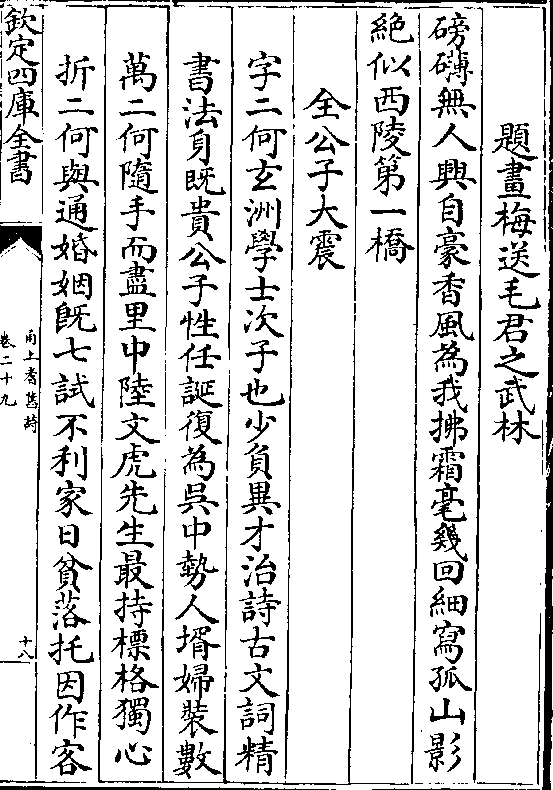 題畫梅送毛君之武林
磅礴無人興自豪香風為我拂霜毫幾回細寫孤山影
絶似西陵第一橋
全公子大震
字二何玄洲學士次子也少負異才治詩古文詞精
書法身既貴公子性任誕復為吳中勢人壻婦裝數
萬二何隨手而盡里中陸文虎先生最持標格獨心
折二何與通婚姻既七試不利家日貧落托因作客
欽定四庫全書
甬上耆舊詩
卷二十九
十八